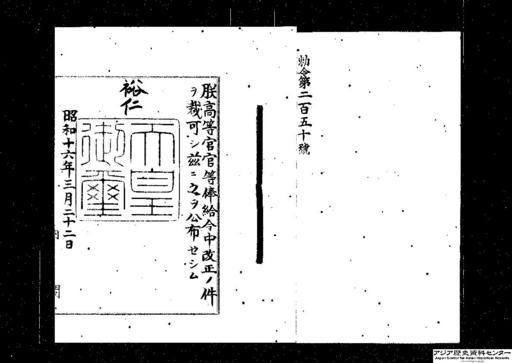 勅令第二百五十號
朕高等官官等俸給令中改正ノ件
ヲ裁可シ茲ニ之ヲ公布セシム
裕仁
天皇
御璽
昭和十六年三月二十二日
内閣
アジア歴史資料センター
Japan Center for Asian Historical Records